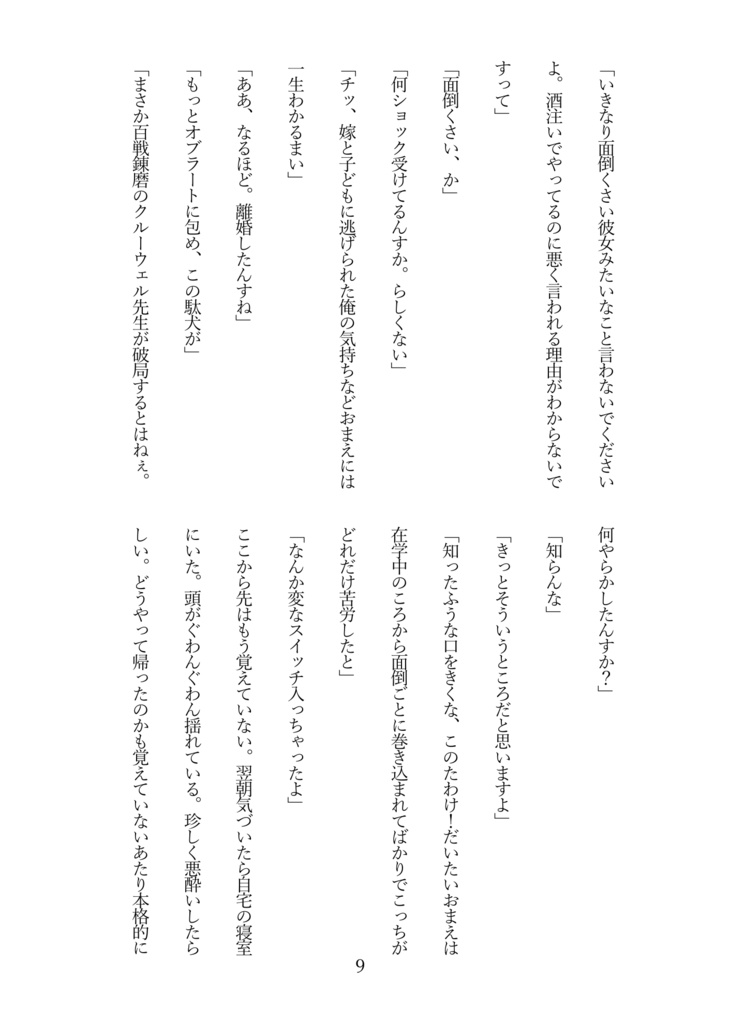 「いきなり面倒くさい彼女みたいなこと言わないでください
よ。酒注いでやってるのに悪く言われる理由がわからないで
すって」
「面倒くさい、か」
「何ショック受けてるんすか。らしくない」
「チッ、嫁と子どもに逃げられた俺の気持ちなどおまえには
一生わかるまい」
「ああ、なるほど。離婚したんすね」
「もっとオブラートに包め、この駄犬が」
「まさか百戦錬磨のクルーウェル先生が破局するとはねぇ。
何やらかしたんすか？」
「知らんな」
「きっとそういうところだと思いますよ」
「知ったふうな口をきくな、このたわけ！だいたいおまえは
在学中のころから面倒ごとに巻き込まれてばかりでこっちが
どれだけ苦労したと」
「なんか変なスイッチ入っちゃったよ」
ここから先はもう覚えていない。翌朝気づいたら自宅の寝室
にいた。頭がぐわんぐわん揺れている。珍しく悪酔いしたら
しい。どうやって帰ったのかも覚えていないあたり本格的に
9